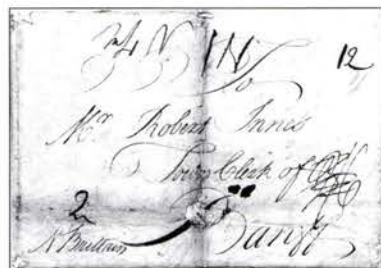 To 12
Mr Robert Innes
Town Clerk of
2 Banff
N Brittain